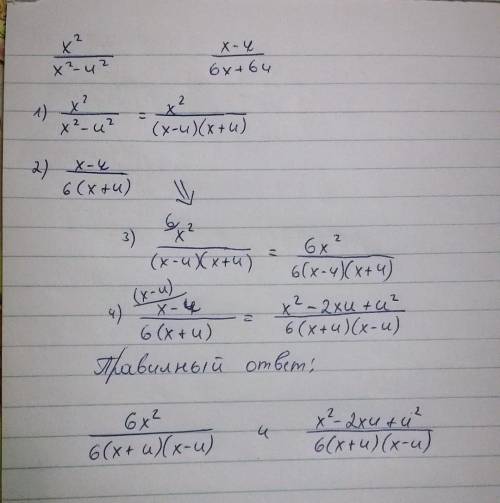 x²/(x²-u²) (x-u)/(6x+6u)
1) x²/(x²-u²) = x²/((x-u)(x+u))
2) (x-u)/(6(x+u)) ⇘
3) 6/ x²/((x-u)(x+u)) = 6x²/(6(x-u)(x+u))
4) (x-u)/ (x-u)/(6(x+u)) = (x²-2xu+u²)/(6(x+u)(x-u))
Правилный ответ:
6x²/(6(x+u)(x-u)) и (x²-2xu+u²)/(6(x+u)(x-u))